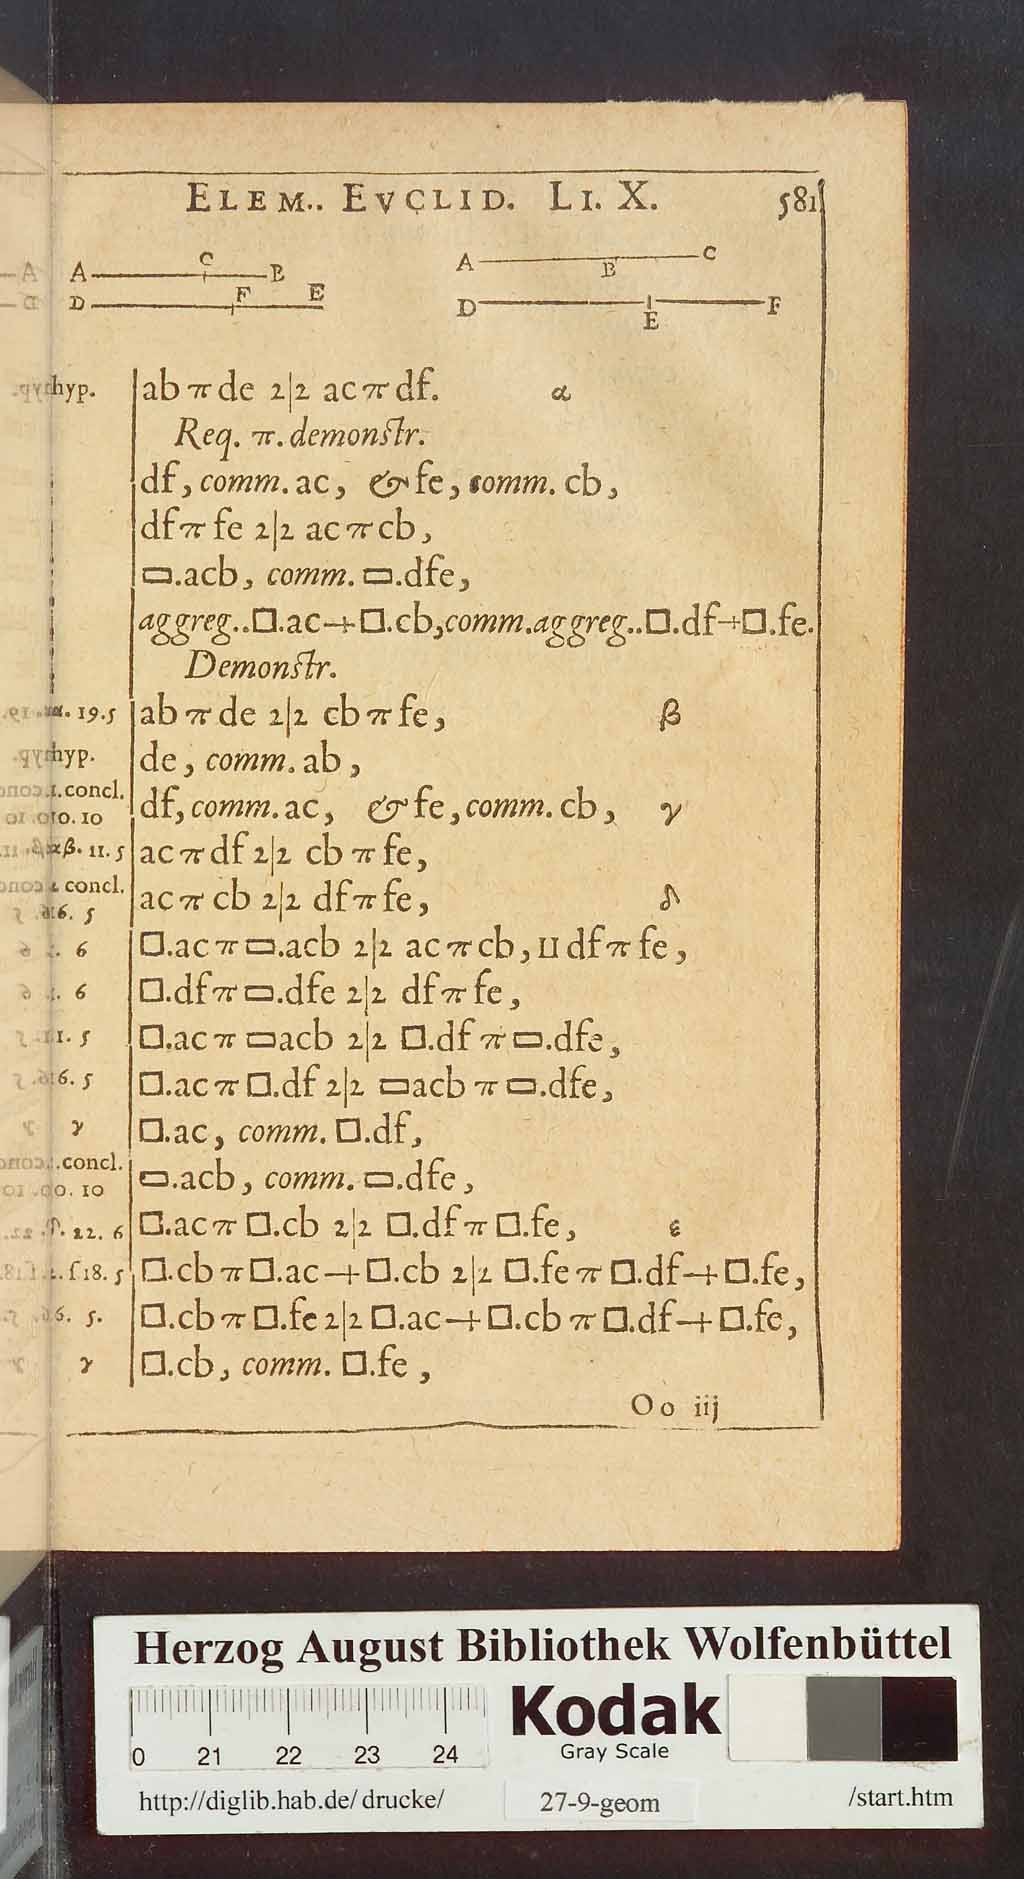 ELEM.. EVCLID. LI. X. 581
A C B
D F E
A B C
D E F
hyp. ab π de 2|2 ac π df. α
Req. π. demonstr.
df, comm. ac, & fe, comm. cb,
df π fe 2|2 ac π cb,
▭.acb, comm. ▭.dfe,
aggreg..□.ac+□.cb,comm.aggreg..□.df+□.fe.
Demonstr.
α. 19.5 ab π de 2|2 cb π fe, β
hyp. de, comm. ab,
1.concl.
10. 10 df, comm. ac, & fe, comm. cb, γ
αβ. 11.5 ac π df 2|2 cb π fe,
2 concl.
16. 5 ac π cb 2|2 df π fe, δ
1. 6 □.ac π ▭.acb 2|2 ac π cb, II df π fe,
1. 6 □.df π ▭.dfe 2|2 df π fe,
11. 5 □.ac π ▭acb 2|2 □.df π ▭.dfe,
16. 5 □.ac π □.df 2|2 ▭acb π ▭.dfe,
γ □.ac, comm. □.df,
.concl.
10. 10 ▭.acb, comm. ▭.dfe,
δ. 22. 6 □.ac π □.cb 2|2 □.df π □.fe, ε
2. ſ18. 5 □.cb π □.ac+□.cb 2|2 □.fe π □.df+□.fe,
16. 5. □.cb π □.fe 2|2 □.ac+□.cb π □.df+□.fe,
γ □.cb, comm. □.fe,
Oo iij
Herzog August Bibliothek Wolfenbüttel
0 21 22 23 24
Kodak
Gray Scale
http://diglib.hab.de/drucke/ 27-9-geom /start.htm